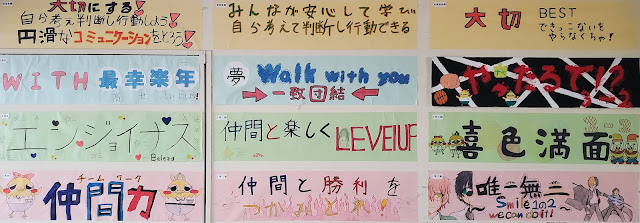 大切にする!
自分考え判断し行動しよう!
円滑なコミュニケーションをとろう!
みんなが安心して学び
自分考えて判断し行動できる
大切 BEST
できっこないを
やらなくちゃ!
WITH 最幸楽年
夢 Walk with you
→一致団結←
やったるで!?
エンジョイナス
仲間と楽しく LEVELUP
喜色満面
チームワーク
仲間力
仲間と勝利を
つかみとれ!
唯一無二
Smile 1の2
we can do it!